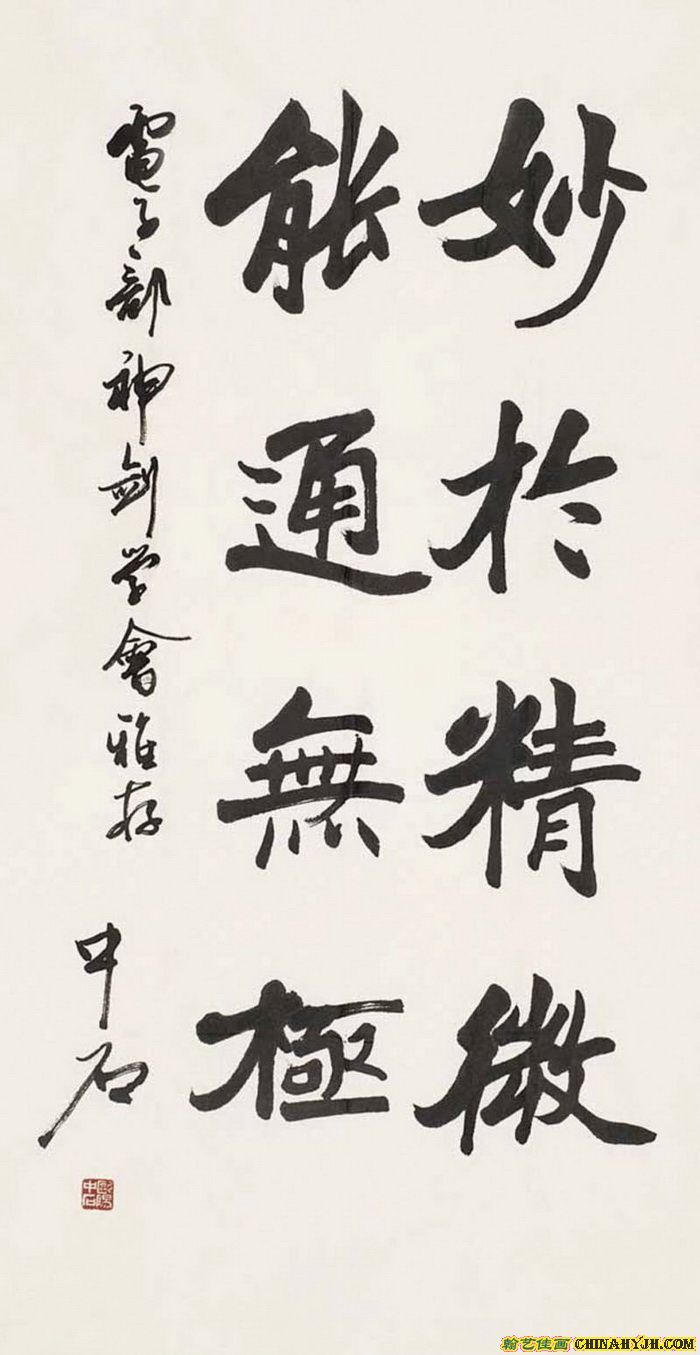 妙於精微
能通無極
電子部神劍学會雅存
中石
歐陽中石
翰艺佳画 CHINAHYJH.COM